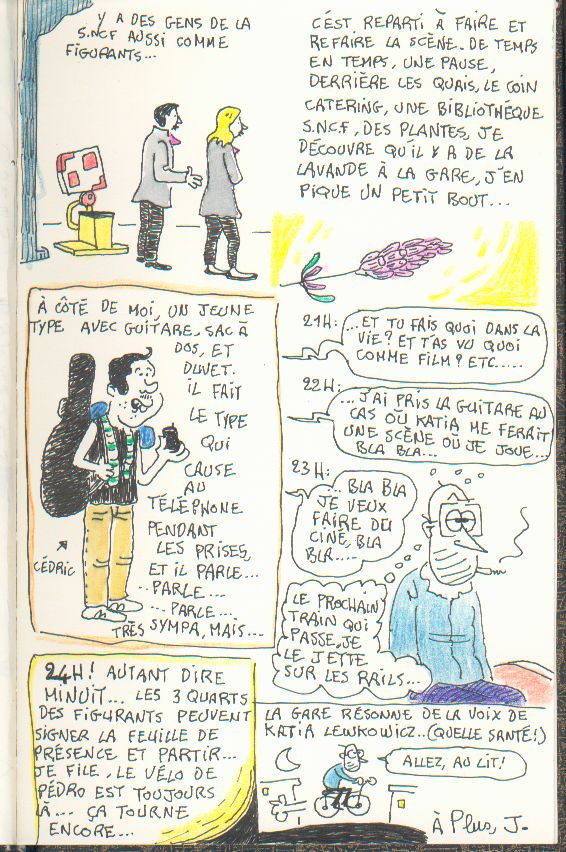 Y A DES GENS DE LA
S.NCF AUSSI COMME
FIGURANTS...
C'EST REPARTI À FAIRE ET
REFAIRE LA SCÈNE. DE TEMPS
EN TEMPS, UNE PAUSE,
DERRIÈRE LES QUAIS, LE COIN
CATERING, UNE BIBLIOTHÈQUE
S.N.C.F, DES PLANTES, JE
DÉCOUVRE QU'IL Y A DE LA
LAVANDE À LA GARE, J'EN
PIQUE UN PETIT BOUT...
À CÔTÉ DE MOI, UN JEUNE
TYPE AVEC GUITARE, SAC À
DOS, ET
DUVET.
IL FAIT
LE TYPE
QUI
CAUSE
AU
TÉLÉPHONE
PENDANT
LES PRISES,
ET IL PARLE...
PARLE...
PARLE...
TRÈS SYMPA, MAIS...
CÉDRIC
21H:
...ET TU FAIS QUOI DANS LA
VIE? ET T'AS VU QUOI
COMME FILM? ETC.....
22H:
...J'AI PRIS LA GUITARE AU
CAS OÙ KATIA ME FERAIT
UNE SCÈNE OÙ JE JOUE...
BLA BLA...
23H:
... BLA BLA
JE VEUX
FAIRE DU
CINÉ, BLA
BLA....
LE PROCHAIN
TRAIN QUI
PASSE, JE
LE JETTE
SUR LES RAILS...
24H! AUTANT DIRE
MINUIT... LES 3 QUARTS
DES FIGURANTS PEUVENT
SIGNER LA FEUILLE DE
PRÉSENCE ET PARTIR...
JE FILE, LE VÉLO DE
PÉDRO EST TOUJOURS
LÀ... ÇA TOURNE
ENCORE...
LA GARE RÉSONNE DE LA VOIX DE
KATIA LEWKOWICZ..(QUELLE SANTÉ!)
ALLEZ, AU LIT!
À Plus, J.